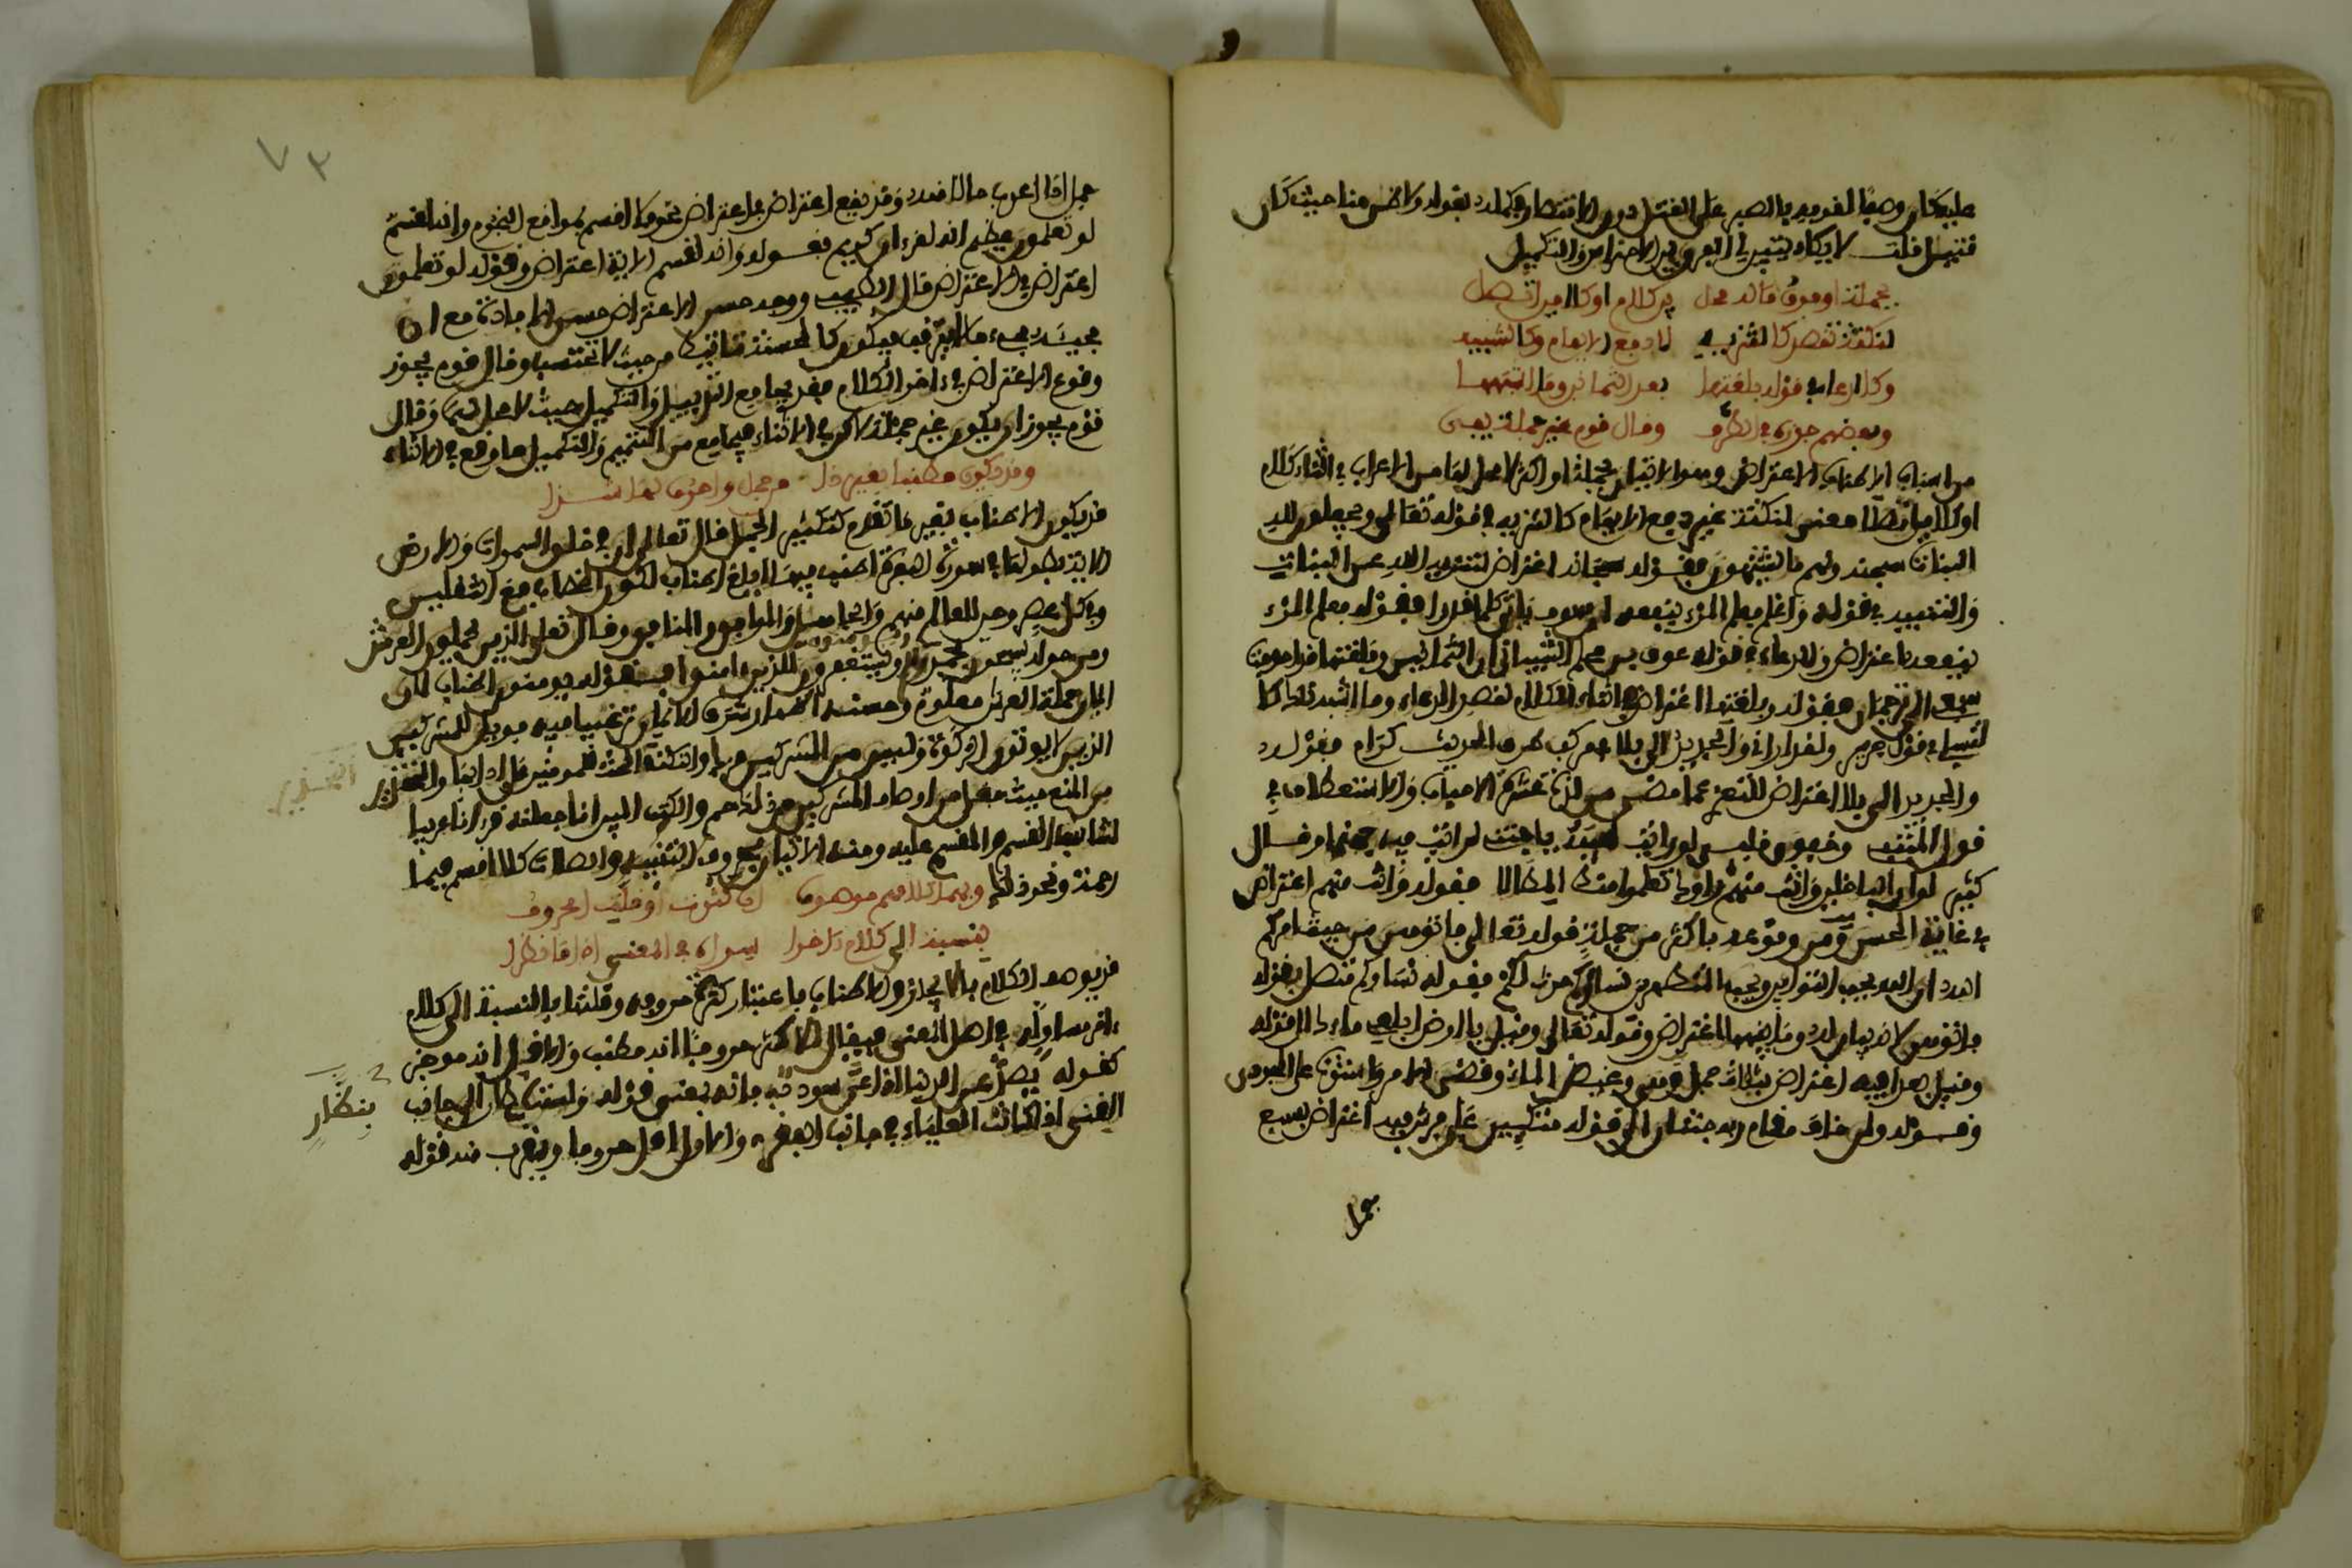 عليه كان وصفا لقومه بالصبر على القتل دون الانتصار فكمله بقوله ولا طل منا حيث كان
قتيل قلت لا يكاد يتبين لي الفرق بين الاحتراس والتكميل
بجملة او فوق ما له محل بين كلام او كلامين اتصل
لنكتة تقصد كالتنزيه لا دفع الايهام وكالتنبيه
وكالدعاء في قوله بلغتها بعد الثمانين وما اشبهها
وبعضهم جوزه في الطرف وقال قوم غير جملة يفي
من اسباب الاطناب الاعتراض وهو الاتيان بجملة او اكثر لا محل لها من الاعراب في اثناء كلام
او كلامين اتصلا معنى لنكتة غير دفع الايهام كالتنزيه في قوله تعالى ويجعلون لله
البنات سبحنه ولهم ما يشتهون فقوله سبحانه اعتراض لتنزيه الله عن البنات
والتنبيه في قوله واعلم فعلم المرء ينفعه ان سوف ياتي كلما قدرا فقوله فعلم المرء
ينفعه اعتراض والدعاء في قوله عوف بن محلم الشيباني ان الثمانين وبلغتها قد احوجت
سمعي الى ترجمان فقوله وبلغتها اعتراض في اثناء الكلام لقصد الدعاء وما اشبه ذلك كا
لقسم في قول جرير ولقد اراني والجديد الى بلا في موكب طرف الحديث كرام فقوله
والجديد الى بلا اعتراض للتعزي عما مضى من لذة عشرة الاحباب والاستعطاف في
قول المتنبي وخفوق قلب لو رايت لهيبه يا جنتي لرايت فيه جهنما وقال
كثير لو ان الباخلين وانت منهم راوك تعلموا منك المطالا فقوله وانت منهم اعتراض
في غاية الحسن ومن وقوعه باكثر من جملة قوله تعالى فاتوهن من حيث امركم
الله ان الله يحب التوابين ويحب المتطهرين نساؤكم حرث لكم فقوله نساؤكم متصل بقوله
فاتوهن لانه بيان له وما بينهما اعتراض وقوله تعالى وقيل يا ارض ابلعي ماءك الى قوله
وقيل بعدا فيه اعتراض بثلاث جمل وهي وغيض الماء وقضي الامر واستوت على الجودي
وقوله ولمن خاف مقام ربه جنتان الى قوله متكئين على فرش فيه اعتراض بسبع
جمل
٧٣
جمل اذا اعرب حالا منه وقد يقع اعتراض في اعتراض نحو فلا اقسم بمواقع النجوم وانه لقسم
لو تعلمون عظيم انه لقرءان كريم فقوله وانه لقسم الاية اعتراض وقوله لو تعلمون
اعتراض في الاعتراض قال الطيبي ووجه حسن الاعتراض حسن الافادة مع ان
مجيئه مجيء ما لا يترقب فيكون كالحسنة تاتيك من حيث لا تحتسب وقال قوم يجوز
وقوع الاعتراض في ءاخر الكلام فقد يجامع التذييل والتكميل حيث لا محل لهما وقال
قوم يجوز ان يكون غير جملة لاكن في الاثناء فيجامع من التتميم والتكميل ما وقع في الاثناء
وقد يكون مطنبا بغير ذا من جمل واحرف لها شذا
قد يكون الاطناب بغير ما تقدم كتكثير الجمل قال تعالى ان في خلق السموات والارض
الاية بطولها في سورة البقرة اطنب فيها ابلغ اطناب لكون الخطاب مع الثقلين
وفي كل عصر وحين للعالم منهم والجاهل والموافق والمنافق وقال تعلى الذين يحملون العرش
ومن حوله يسبحون بحمد ربهم ويومنون به ويستغفرون للذين ءامنوا فقوله ويومنون به اطناب لان
ايمان حملة العرش معلوم وحسنه اظهار شرف الايمان ترغيبا فيه فويل للمشركين
الذين لا يوتون الزكوة وليس من المشركين مزك والنكتة الحث للمومنين على ادائها والتحذير
من المنع حيث جعل من اوصاف المشركين ومن ذلك حم والكتب المبين انا جعلنه قرءانا عربيا
لتناسب القسم والمقسم عليه ومنه الاتيان بحروف التنبيه والصلات كلا اقسم فبما
رحمة ونحو ذلك وبهما كلامهم موصوف ان كثرت او قلت الحروف
بنسبة الى كلام ءاخرا سواه في المعنى اذا ما نظرا
قد يوصف الكلام بالايجاز والاطناب باعتبار كثرة حروفه وقلتها بالنسبة الى كلام
ءاخر مساو له في اصل المعنى فيقال للاكثر حروفا انه مطنب وللاقل انه موجز
كقوله يصد عن الدنيا اذا عن سودد فانه بمعنى قوله ولست بنظار الى جانب
الغنى اذا كانت العلياء في جانب الفقر والاول اقل حروفا ويقرب منه قوله
التحذير
بنظار